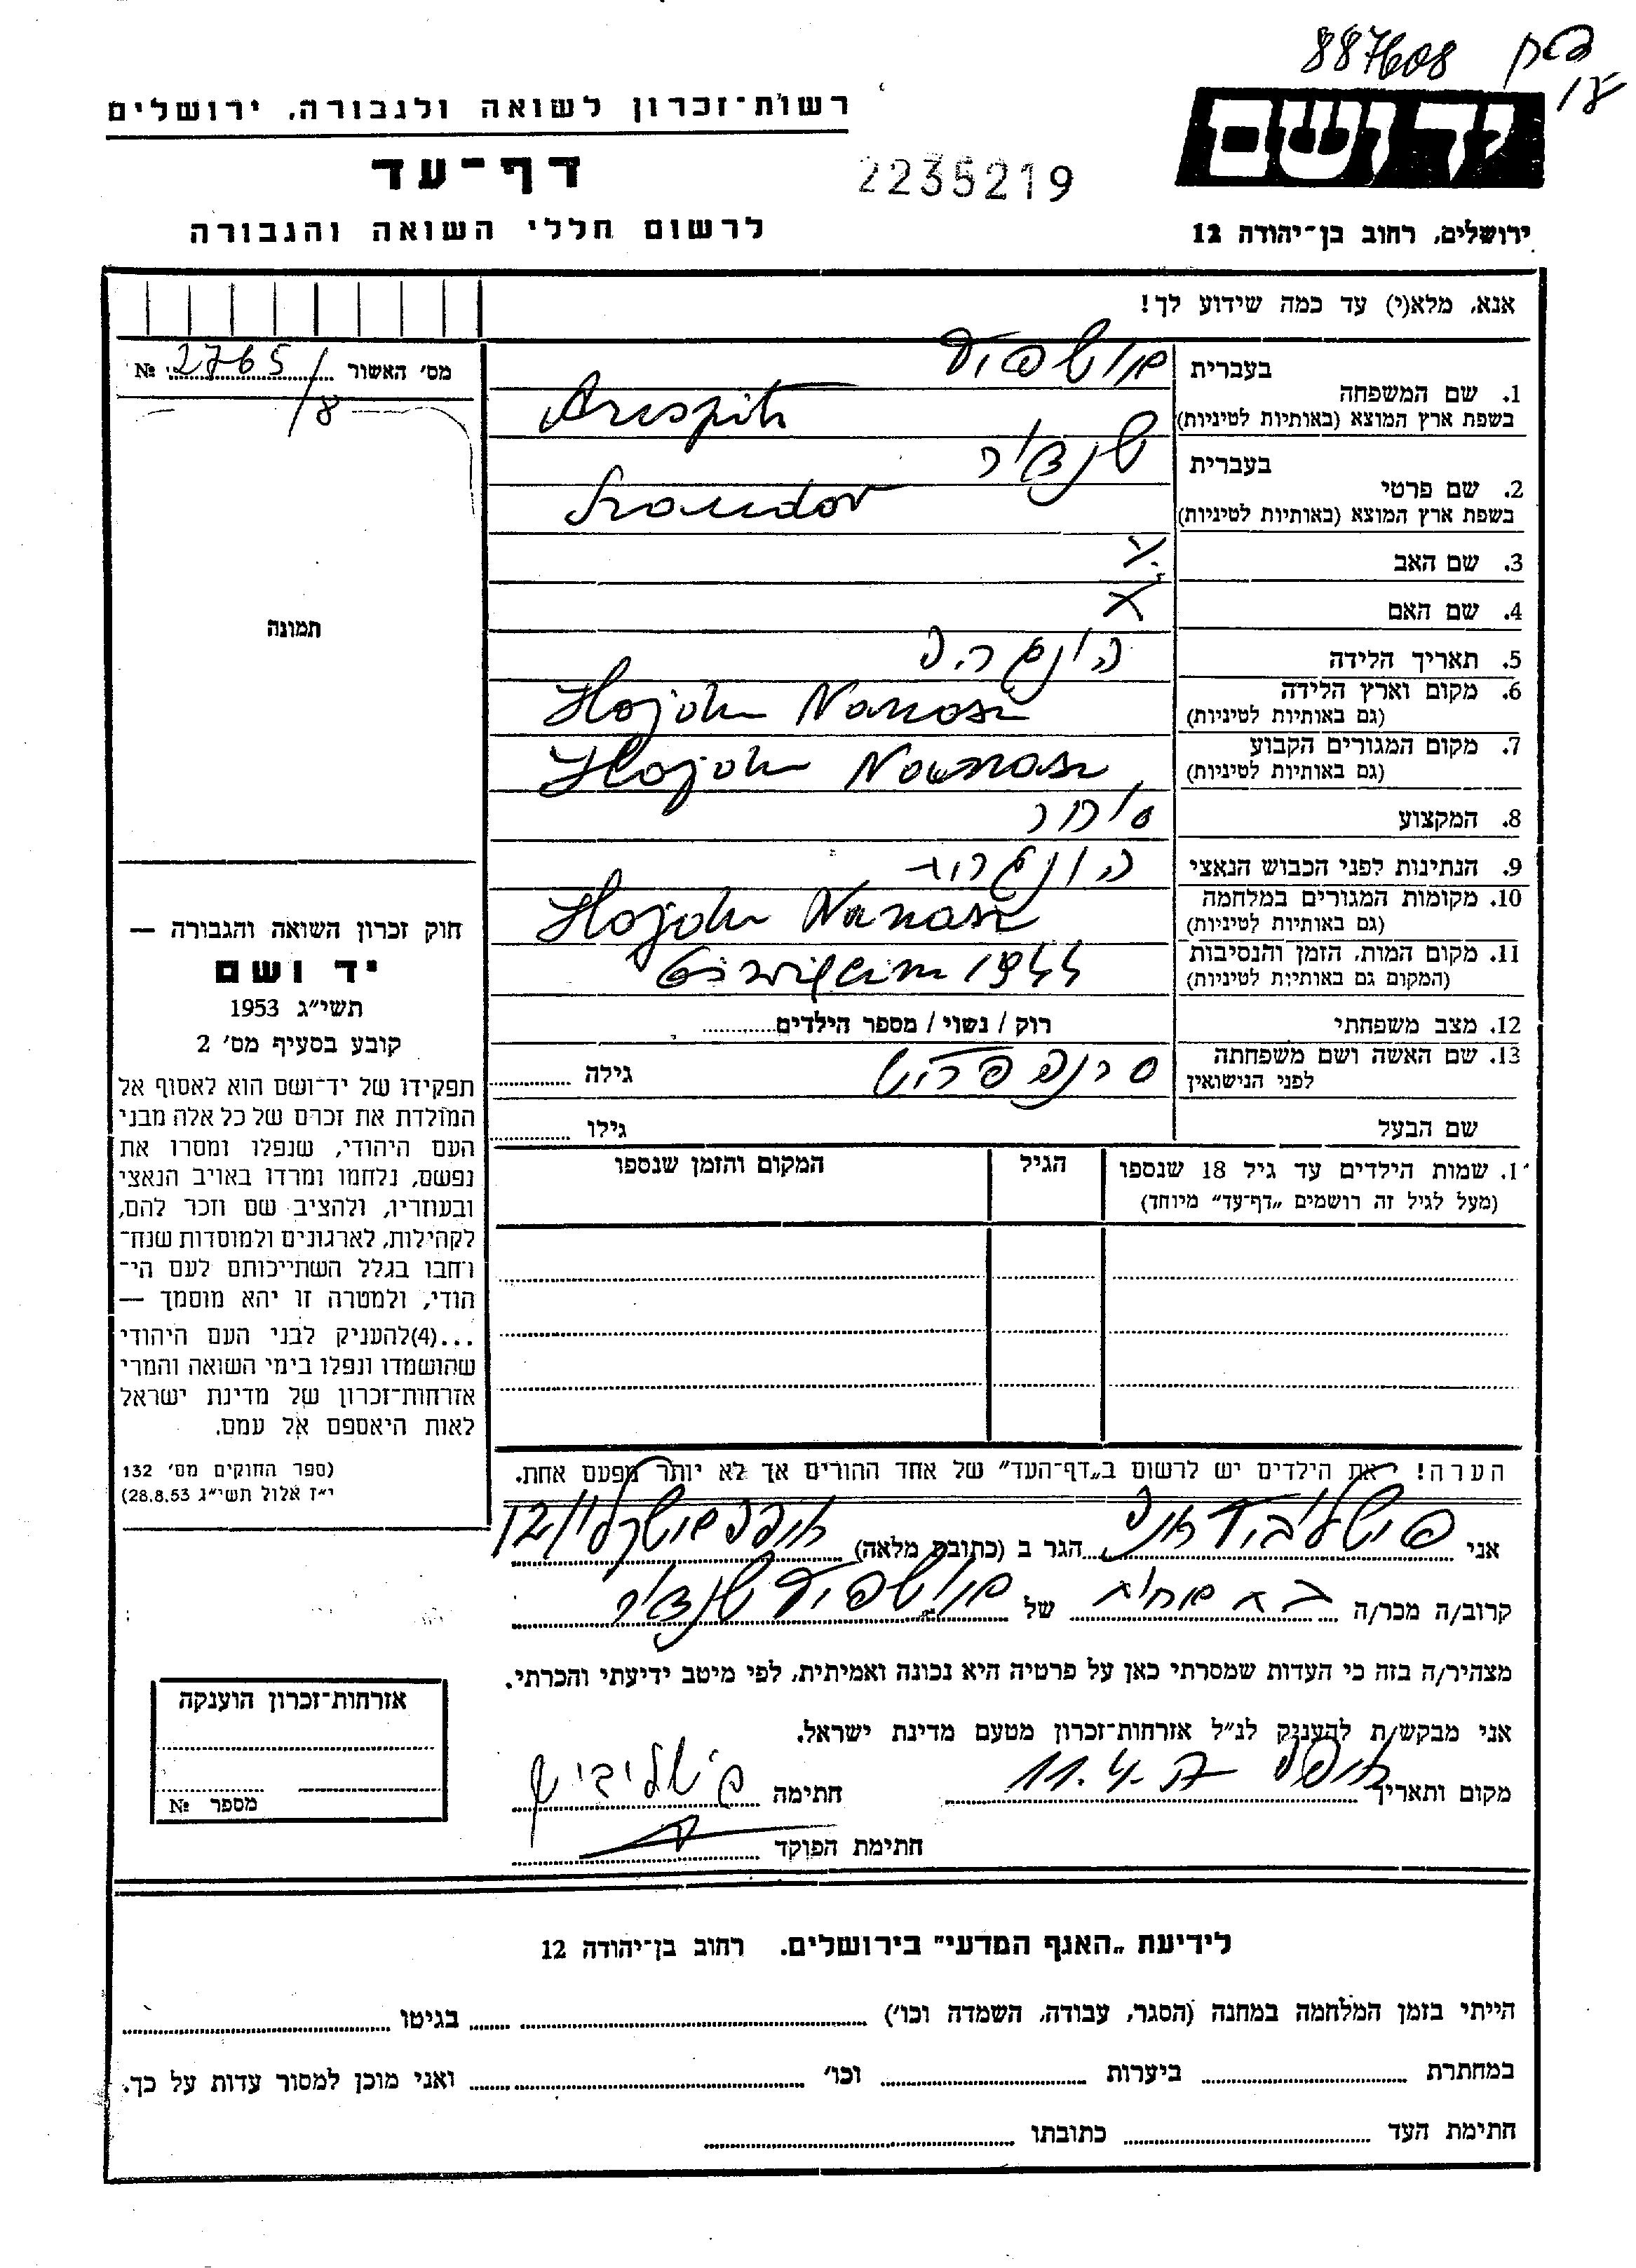 887608
יד ושם
רשות־זכרון לשואה ולגבורה, ירושלים
דף־עד
2235219
לרשום חללי השואה והגבורה
ירושלים, רחוב בן־יהודה 12
אנא, מלא(י) עד כמה שידוע לך!
מס׳ האשור № 2765/8
תמונה
בעברית
1. שם המשפחה
בשפת ארץ המוצא (באותיות לטיניות)
בעברית שנדור
2. שם פרטי
בשפת ארץ המוצא (באותיות לטיניות) Szandor
3. שם האב
4. שם האם
5. תאריך הלידה
6. מקום וארץ הלידה Hojdu Nanasz
(גם באותיות לטיניות)
7. מקום המגורים הקבוע Hojdu Nanasz
(גם באותיות לטיניות)
8. המקצוע סוחר
9. הנתינות לפני הכבוש הנאצי הונגרית
10. מקומות המגורים במלחמה Hojdu Nanasz
(גם באותיות לטיניות)
11. מקום המות, הזמן והנסיבות 1944
(המקום גם באותיות לטיניות)
12. מצב משפחתי רוק / נשוי / מספר הילדים
13. שם האשה ושם משפחתה
לפני הנישואין
גילה
שם הבעל גילו
1. שמות הילדים עד גיל 18 שנספו
(מעל לגיל זה רושמים „דף־עד" מיוחד)
הגיל
המקום והזמן שנספו
חוק זכרון השואה והגבורה —
יד ושם
תשי״ג 1953
קובע בסעיף מס׳ 2
תפקידו של יד־ושם הוא לאסוף אל
המולדת את זכרם של כל אלה מבני
העם היהודי, שנפלו ומסרו את
נפשם, נלחמו ומרדו באויב הנאצי
ובעוזריו, ולהציב שם וזכר להם,
לקהילות, לארגונים ולמוסדות שנח־
רבו בגלל השתייכותם לעם הי־
הודי, ולמטרה זו יהא מוסמך —
...(4)להעניק לבני העם היהודי
שהושמדו ונפלו בימי השואה והמרי
אזרחות־זכרון של מדינת ישראל
לאות היאספם אל עמם.
(ספר החוקים מס׳ 132
י״ז אלול תשי״ג 28.8.53)
הערה! את הילדים יש לרשום ב„דף־העד" של אחד ההורים אך לא יותר מפעם אחת.
אני הגר ב (כתובת מלאה)
קרוב/ה מכר/ה של
מצהיר/ה בזה כי העדות שמסרתי כאן על פרטיה היא נכונה ואמיתית, לפי מיטב ידיעתי והכרתי.
אני מבקש/ת להעניק לנ״ל אזרחות־זכרון מטעם מדינת ישראל.
מקום ותאריך 11.4. חתימה
חתימת הפוקד
אזרחות־זכרון הוענקה
מספר №
לידיעת „האגף המדעי" בירושלים. רחוב בן־יהודה 12
הייתי בזמן המלחמה במחנה (הסגר, עבודה, השמדה וכו׳) בגיטו
במחתרת ביערות וכו׳ ואני מוכן למסור עדות על כך.
חתימת העד כתובתו